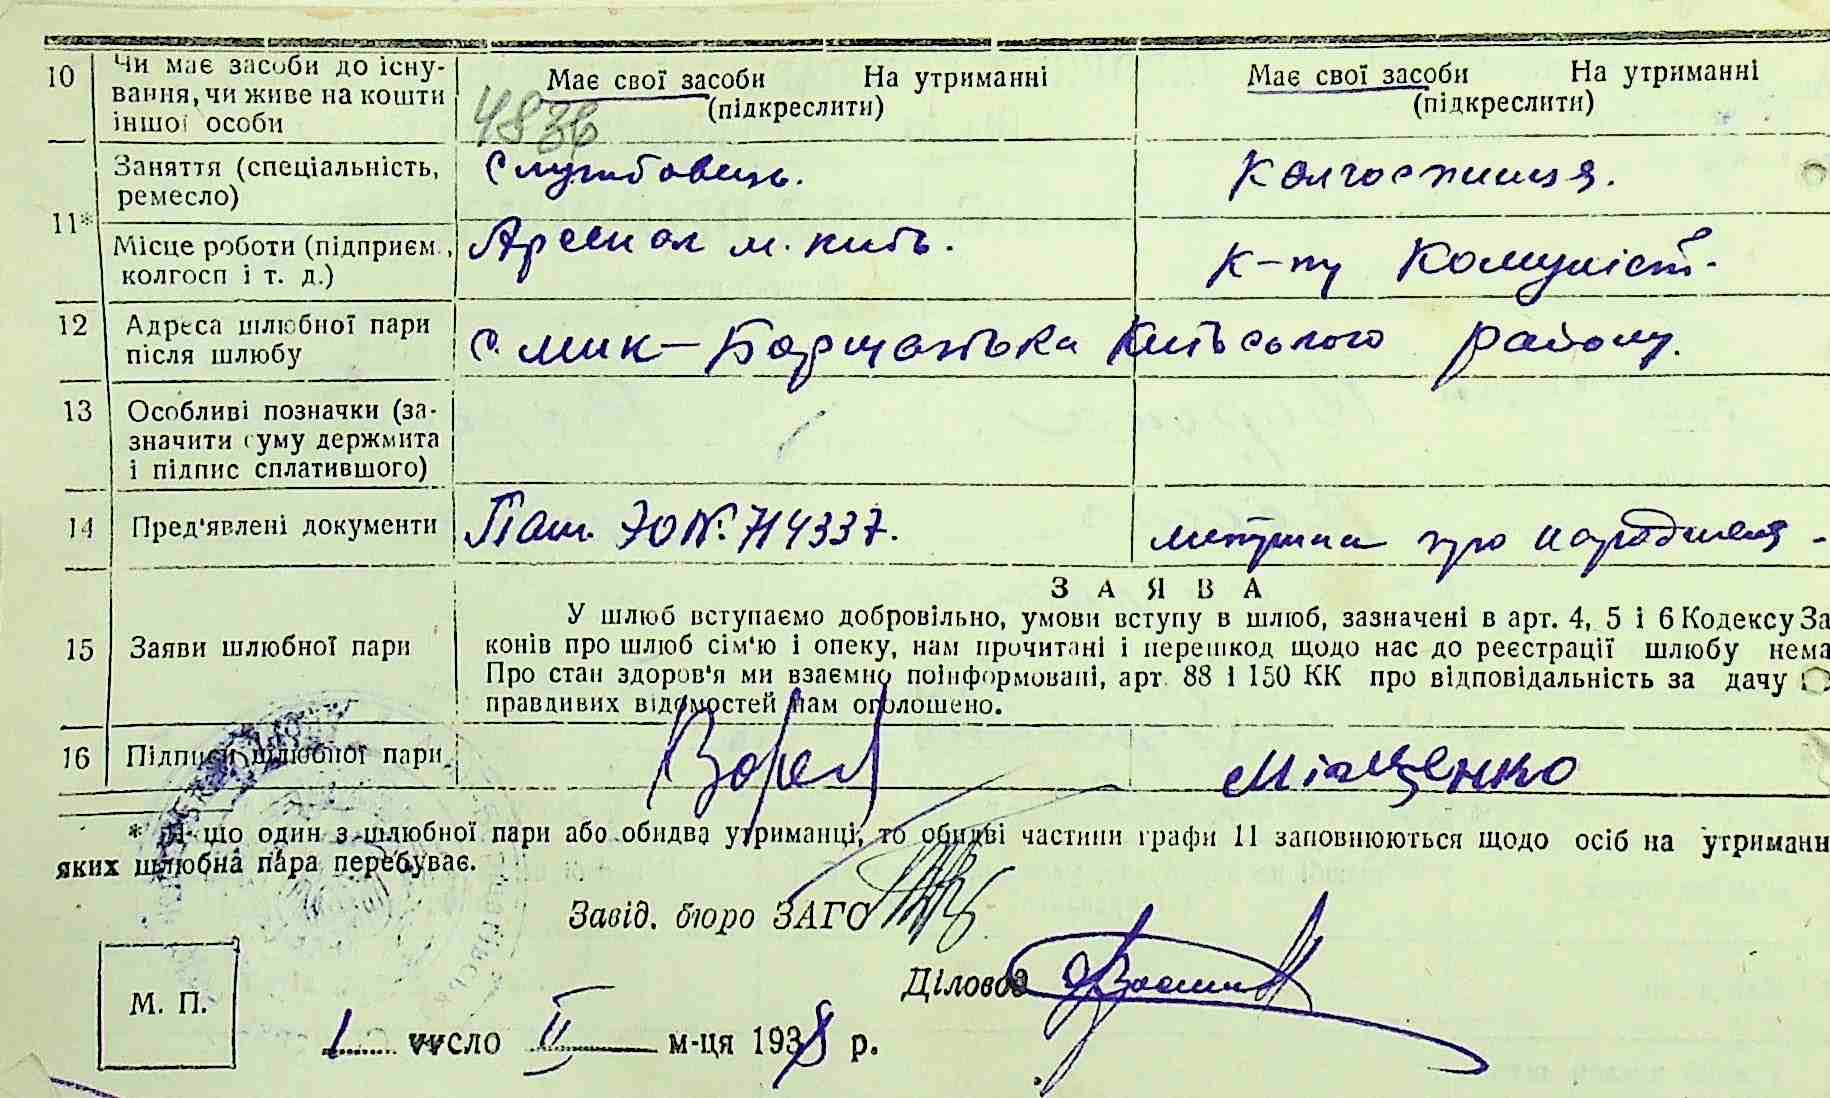 10 Чи має засоби до існу-
вання, чи живе на кошти
іншої особи
Має свої засоби На утриманні
(підкреслити)
Має свої засоби На утриманні
(підкреслити)
4836
11* Заняття (спеціальність,
ремесло)
Службовець.
Колгоспниця.
Місце роботи (підприєм.,
колгосп і т. д.)
Арсенал м. Київ.
К-пу Комуніст.
12 Адреса шлюбної пари
після шлюбу
с. Мик-Борщагівка Київського району.
13 Особливі позначки (за-
значити суму держмита
і підпис сплатившого)
14 Пред'явлені документи
Паш. ЭЮ №. 714337.
про народження -
З А Я В А
15 Заяви шлюбної пари
У шлюб вступаємо добровільно, умови вступу в шлюб, зазначені в арт. 4, 5 і 6 Кодексу За
конів про шлюб сім'ю і опеку, нам прочитані і перешкод щодо нас до реєстрації шлюбу нема
Про стан здоров'я ми взаємно поінформовані, арт. 88 і 150 КК про відповідальність за дачу
правдивих відомостей нам оголошено.
16 Підписи шлюбної пари
Міщенко
* Я що один з шлюбної пари або обидва утриманці, то обидві частини графи 11 заповнюються щодо осіб на утриманн
яких шлюбна пара перебуває.
Завід. бюро ЗАГС
Діловод
М. П.
1 число II м-ця 1938 р.